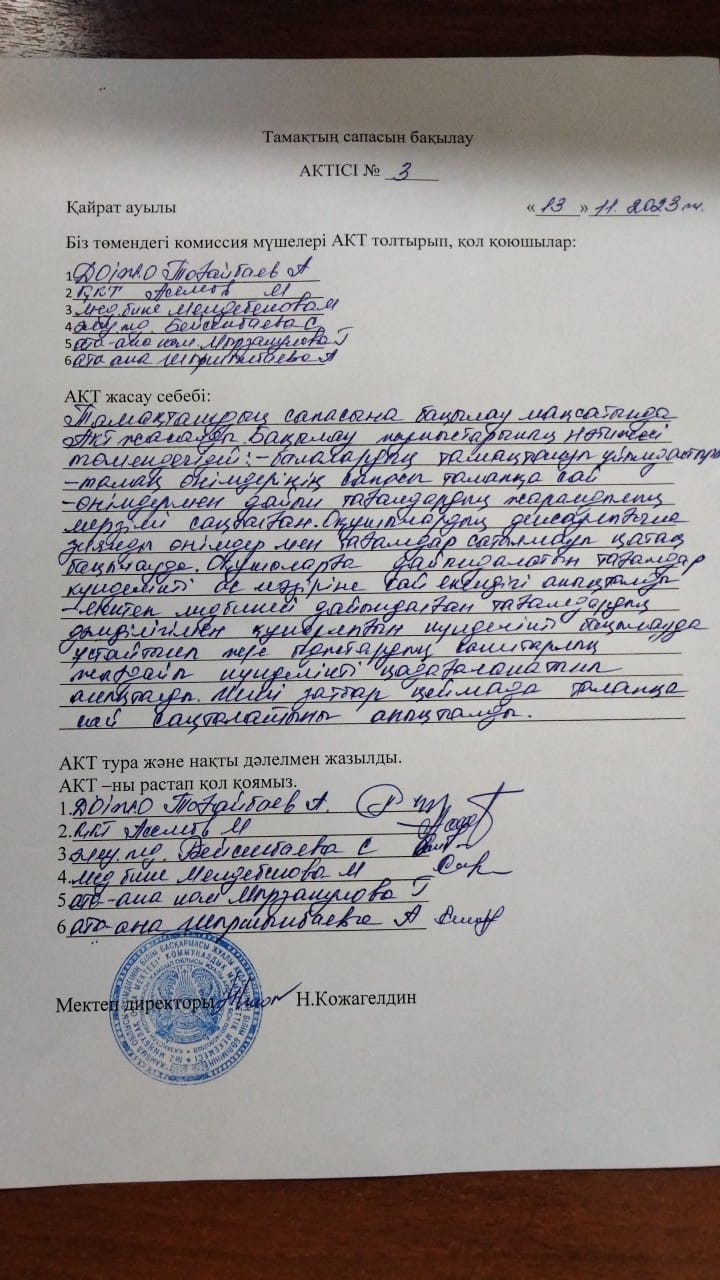 Тамақтың сапасын бақылау
АКТІСІ № 3
Қайрат ауылы «13» 11. 2023 ж.
Біз төмендегі комиссия мүшелері АКТ толтырып, қол қоюшылар:
1 ДОІЖО Тоғайбаев А
2 ҚКТ Аселов М
3 мед.бике Мелдебекова М
4 әлеу.пед. Бейсенбаева С
5 ата-ана ком. Мырзақұлова Г
6 ата ана Шорманбаева А
АКТ жасау себебі:
Тамақтанудың сапасына бақылау мақсатында
Акт жасалды. Бақылау жұмыстарының нәтижесі
төмендегідей: - балалардың тамақтануын ұйымдастыру
- тамақ өнімдерінің сапасы талапқа сай
- өнімдермен дайын тағамдардың жарамдылық
мерзімі сақталған. Оқушылардың денсаулығына
зиянды өнімдер мен тағамдар сатылмауы қатаң
бақылауда. Оқушыларға дайындалатын тағамдар
күнделікті ас мәзіріне сай екендігі анықталды
- мектеп медбикесі дайындалған тағамдардың
дәмділігімен құнарлығын күнделікті бақылауда
ұстайтыны және санитарлық
жағдайы күнделікті қадағаланатыны
анықталды. заттар қоймада талапқа
сай сақталатыны анықталды.
АКТ тура және нақты дәлелмен жазылды.
АКТ –ны растап қол қоямыз.
1. ДОІЖО Тоғайбаев А.
2. ҚКТ Аселов М
3 әлеу.пед. Бейсенбаева С
4. мед бике Мелдебекова М
5 ата-ана ком Мырзақұлова Г
6 ата-ана А
Мектеп директоры Н.Кожагелдин